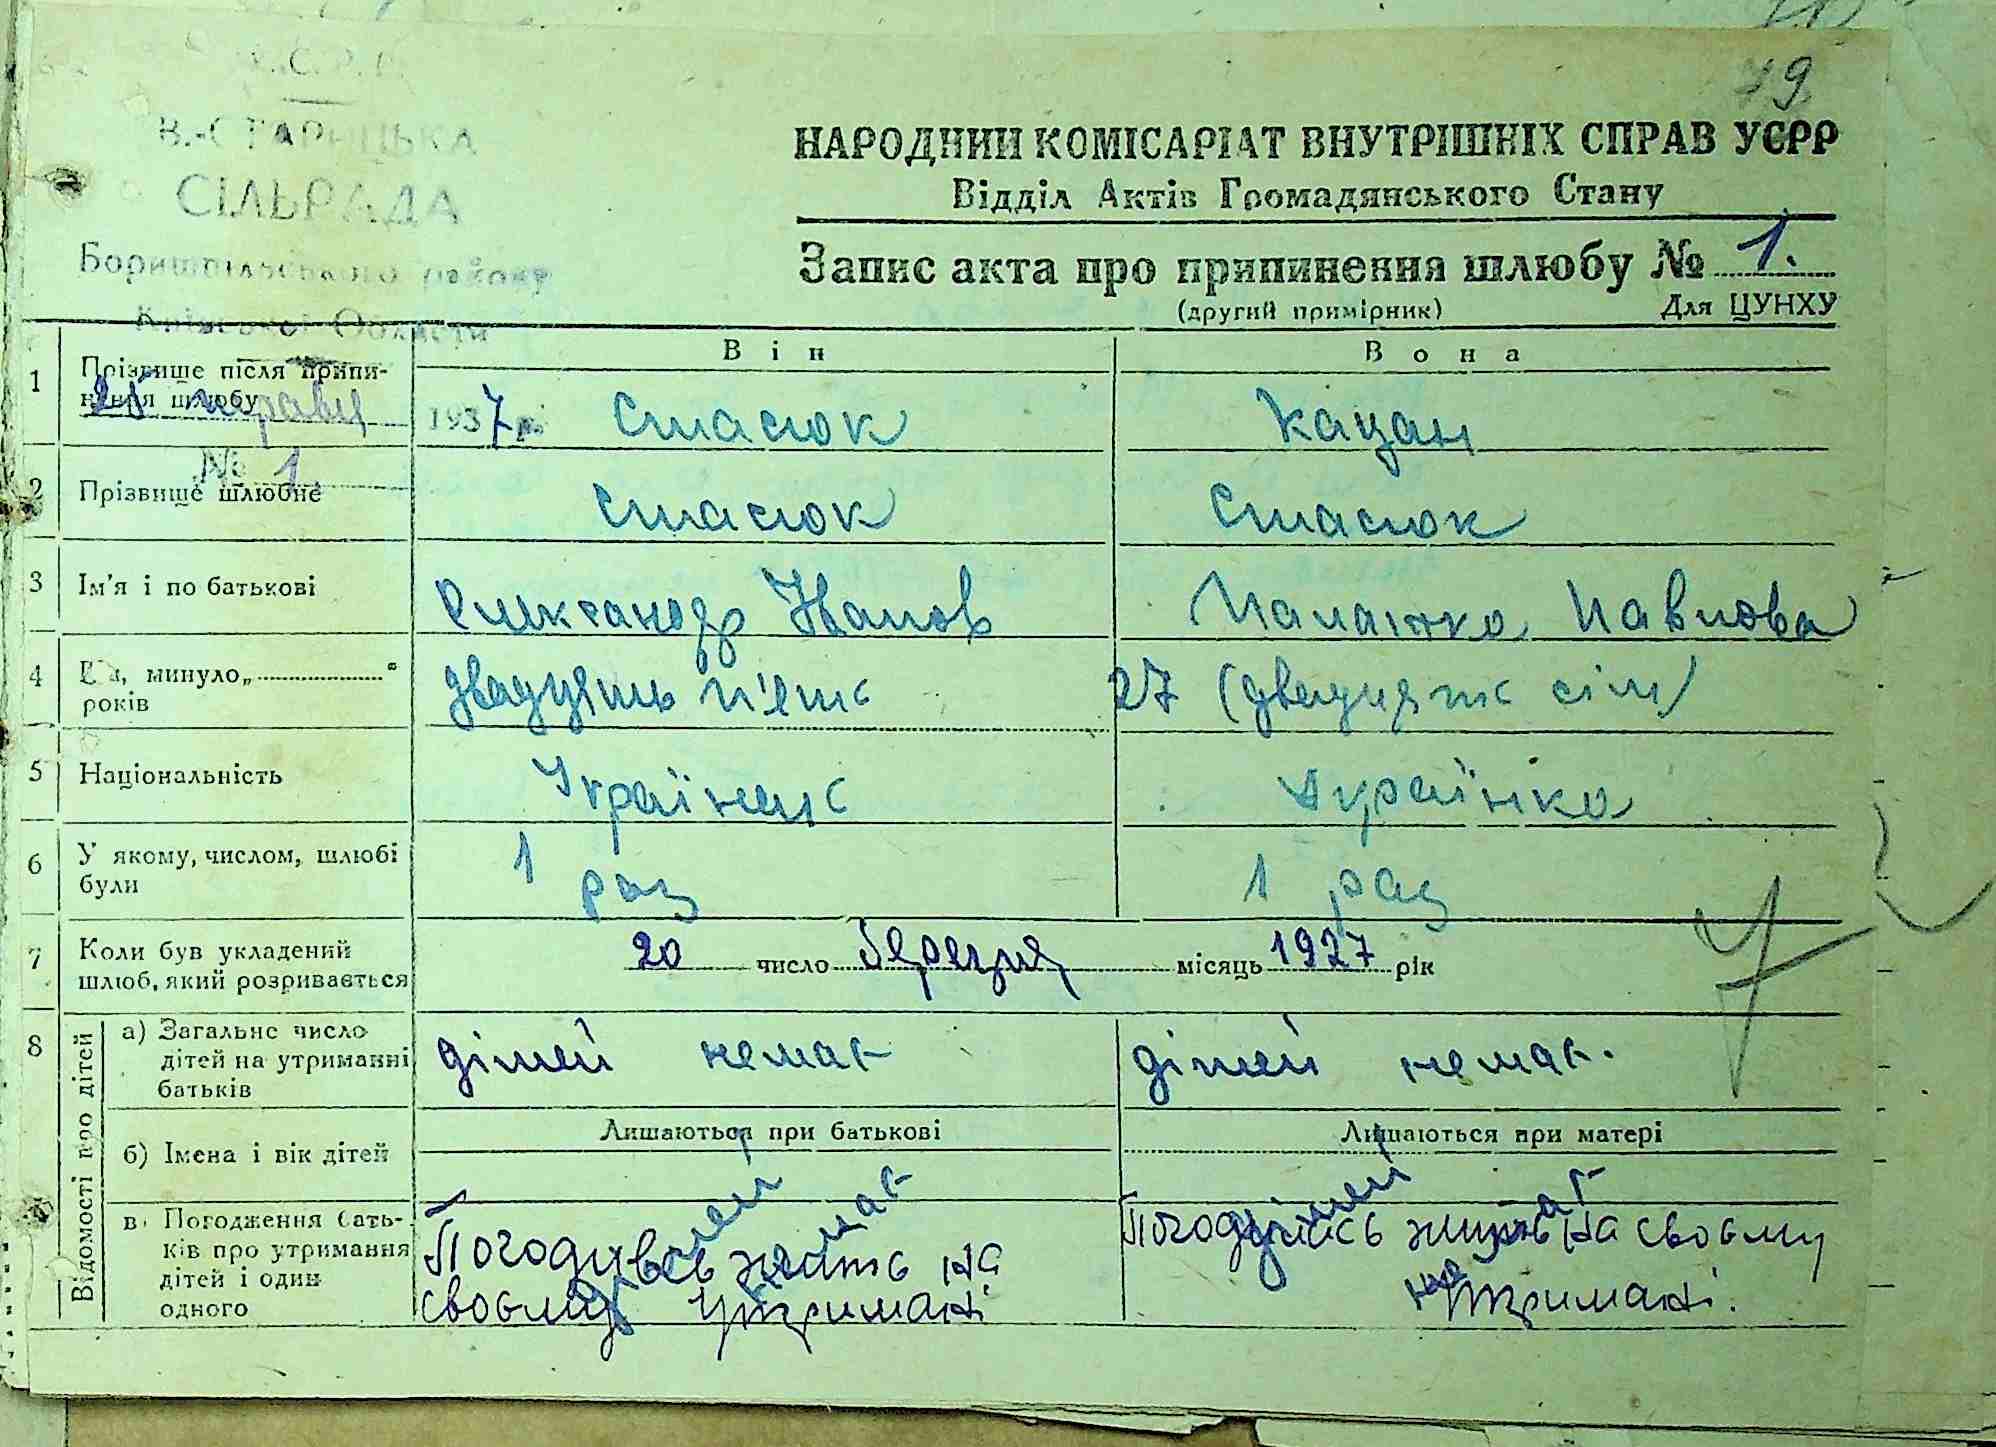 49
У.С.Р.Р.
В.-СТАРИЦЬКА
СІЛЬРАДА
Бориспільського району
Київської Области
25 травня 1937 р.
№ 1
НАРОДНИЙ КОМІСАРІАТ ВНУТРІШНІХ СПРАВ УСРР
Відділ Актів Громадянського Стану
Запис акта про припинення шлюбу № 1.
(другий примірник) Для ЦУНХУ
Він Вона
1 Прізвище після припи-
нення шлюбу Стасюк Кацан
2 Прізвище шлюбне Стасюк Стасюк
3 Ім'я і по батькові Олександр Іванов Палажка Павлова
4 Вік, минуло „ “
років двадцять п'ять 27 (двадцять сім)
5 Національність Українець Українка
6 У якому, числом, шлюбі
були 1 раз 1 раз
7 Коли був укладений
шлюб, який розривається 20 число березня місяць 1927 рік
8 Відомості про дітей
а) Загальне число
дітей на утриманні
батьків дітей немає дітей немає.
Лишаються при батькові Лишаються при матері
б) Імена і вік дітей дітей немає дітей немає
в) Погодження бать-
ків про утримання
дітей і один
одного
Погодивсь жить на
своєму утримані
Погодилась жить на своєму
утримані.